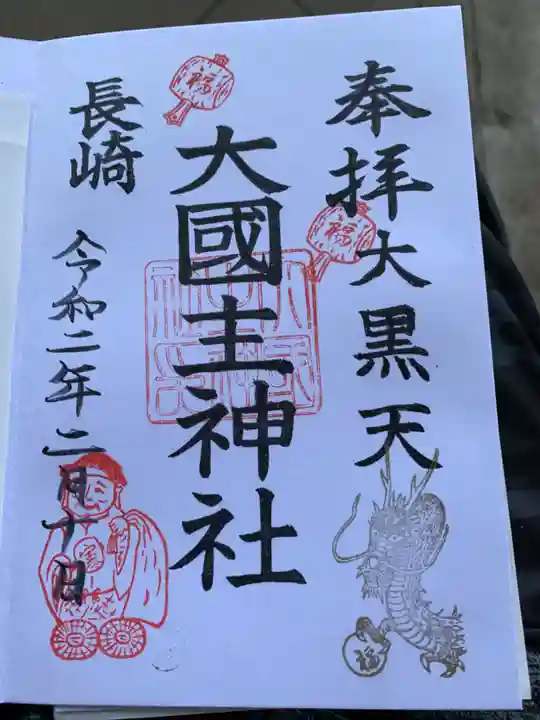 奉拝大黒天
福
大國主神社
福
長崎
令和二年二月十日
福